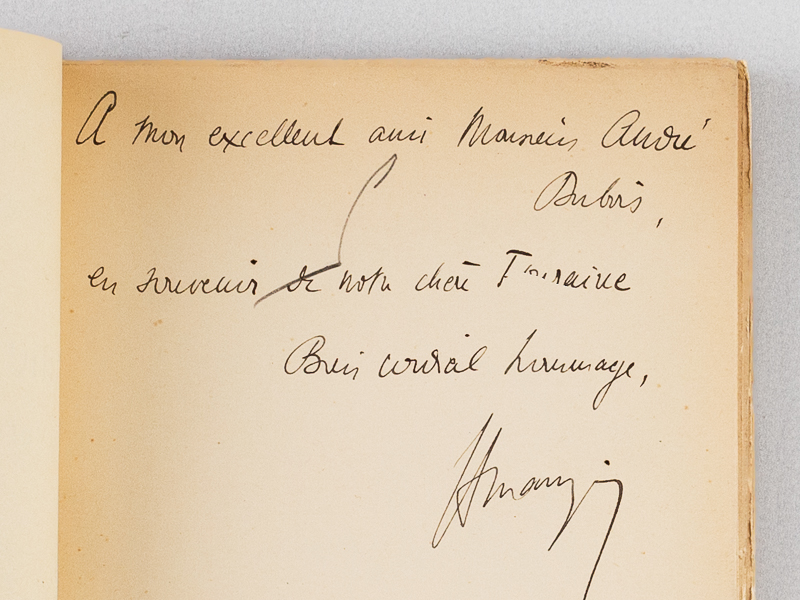 A mon excellent ami Monsieur André
Dubois,
en souvenir de notre chère Touraine
Bien cordial hommage,